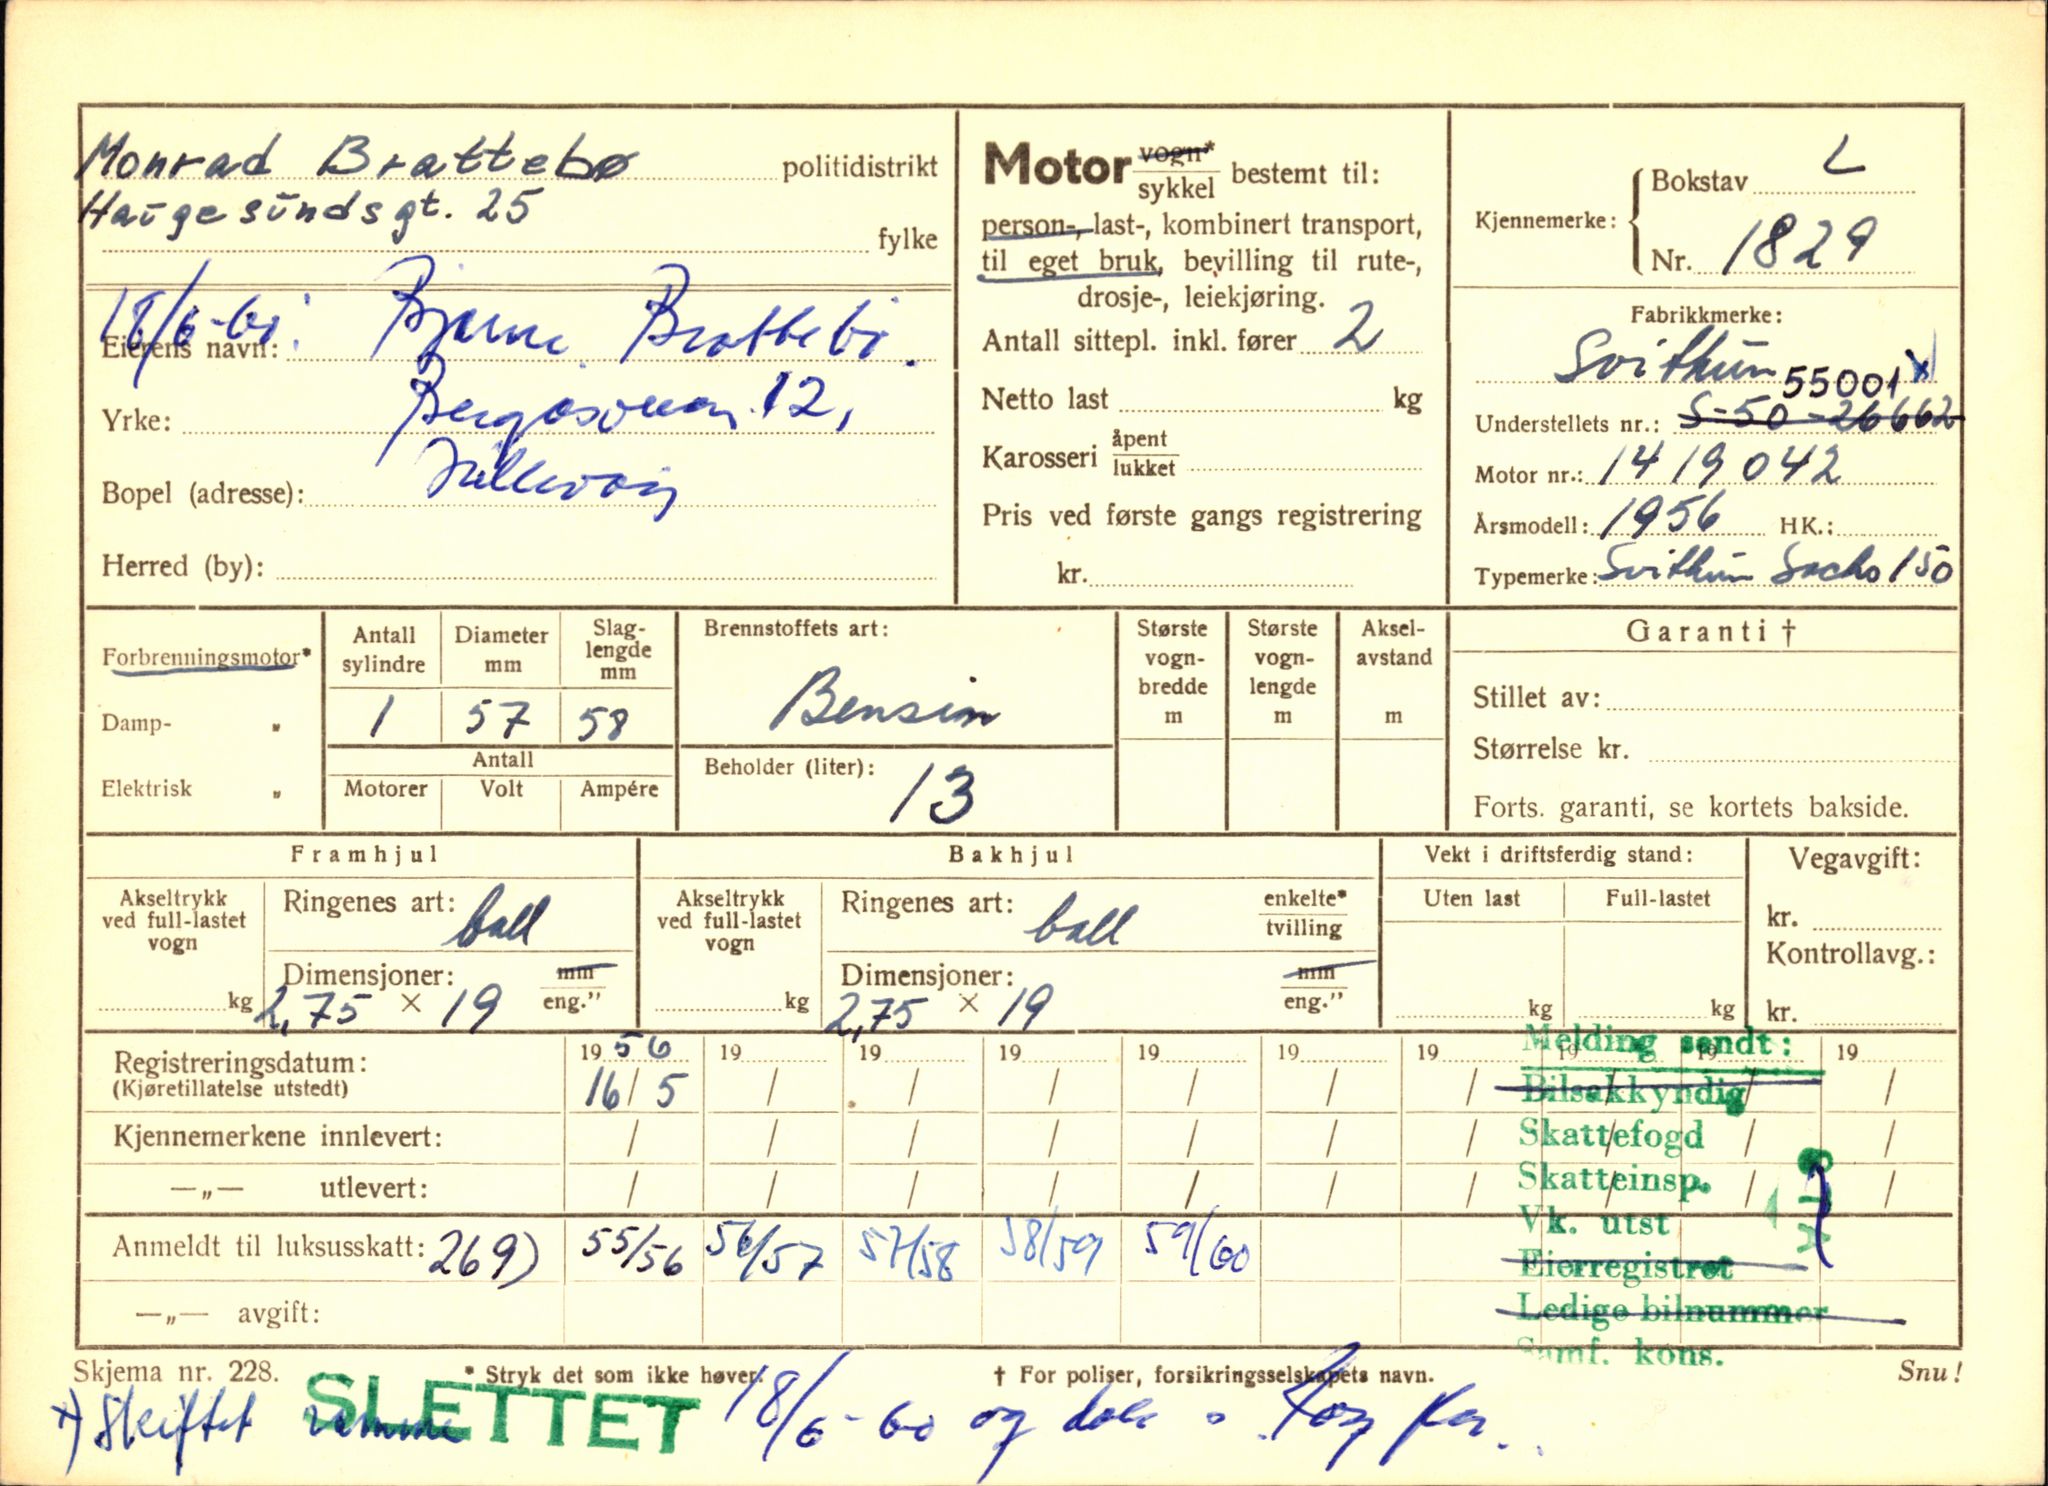 Monrad Brattebø politidistrikt
Haugesundsgt. 25
fylke
18/6-60: Bjarne Brattebø.
Eierens navn:
Yrke: 12,
Bopel (adresse): Hillevåg
Herred (by):
Motor vogn* sykkel bestemt til:
person-, last-, kombinert transport,
til eget bruk, bevilling til rute-,
drosje-, leiekjøring.
Antall sittepl. inkl. fører 2
Netto last kg
Karosseri åpent lukket
Pris ved første gangs registrering
kr.
Kjennemerke:
Bokstav L
Nr. 1829
Fabrikkmerke:
Svithun
55001 x)
Understellets nr.: S-50-26662
Motor nr.: 1419042
Årsmodell: 1956 HK.:
Typemerke: Svithun Sachs 150
Forbrenningsmotor*
Damp- „
Elektrisk „
Antall sylindre
1
Diameter mm
57
Slag-
lengde
mm
58
Antall
Motorer Volt Ampére
Brennstoffets art:
Bensin
Beholder (liter):
13
Største
vogn-
bredde
m
Største
vogn-
lengde
m
Aksel-
avstand
m
Garanti †
Stillet av:
Størrelse kr.
Forts. garanti, se kortets bakside.
Framhjul
Akseltrykk
ved full-lastet
vogn
kg
Ringenes art: ball
Dimensjoner: mm
2,75 × 19 eng."
Bakhjul
Akseltrykk
ved full-lastet
vogn
kg
Ringenes art: ball enkelte* tvilling
Dimensjoner: mm
2,75 × 19 eng."
Vekt i driftsferdig stand:
Uten last Full-lastet
kg kg
Vegavgift:
kr.
Kontrollavg.:
kr.
Registreringsdatum: 19 56 19 19 19 19 19 19 19 19 19
(Kjøretillatelse utstedt) 16/5 / / / / / / / / /
Kjennemerkene innlevert: / / / / / / / / / /
—„— utlevert: / / / / / / / / / /
Anmeldt til luksusskatt: 269) 55/56 56/57 57/58 58/59 59/60
—„— avgift:
Melding sendt:
Bilsakkyndig
Skattefogd
Skatteinsp.
Vk. utst
Eierregistret
Ledige bilnummer
Samf. kons.
Skjema nr. 228. * Stryk det som ikke høver. † For poliser, forsikringsselskapets navn. Snu!
SLETTET
x) Skiftet ramme 18/6-60 og